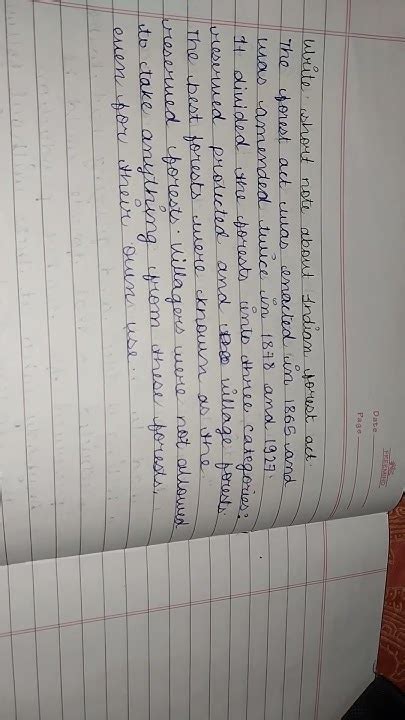 Date
Page
Write short note about Indian forest act.
The forest act was enacted in 1865 and
was amended twice in 1878 and 1927.
It divided the forests into three categories:
reserved protected and village forests.
The best forests were known as the
reserved forests. Villagers were not allowed
to take anything from these forests,
even for their own use.